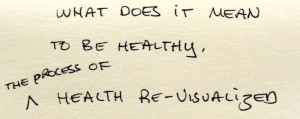 WHAT DOES IT MEAN
TO BE HEALTHY,
THE PROCESS OF
^ HEALTH RE-VISUALIZED